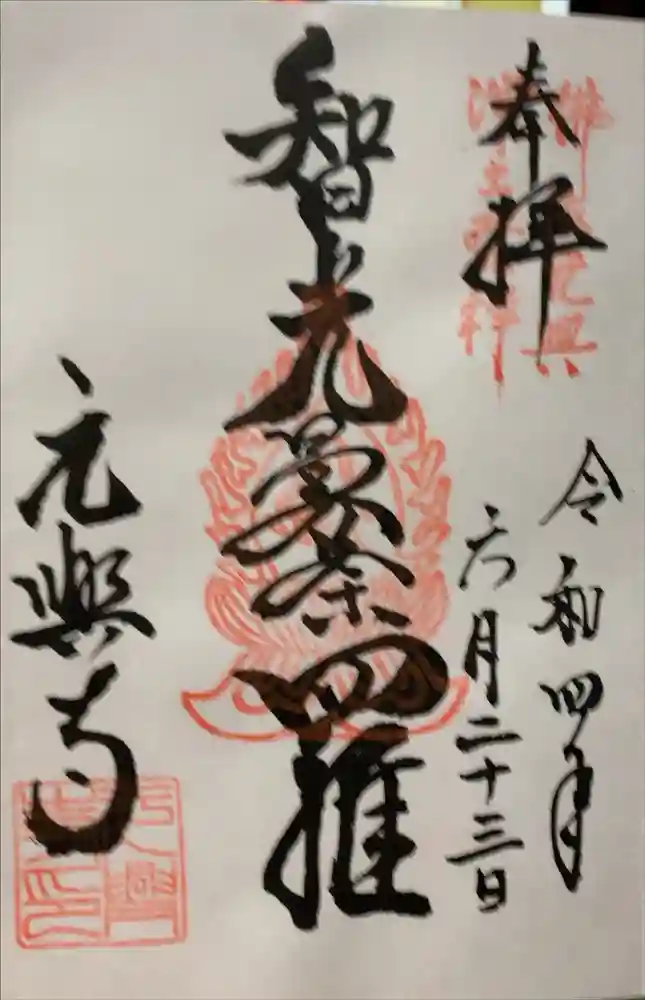 奉拝
令和四年
六月二十三日
智光曼荼羅
元興寺